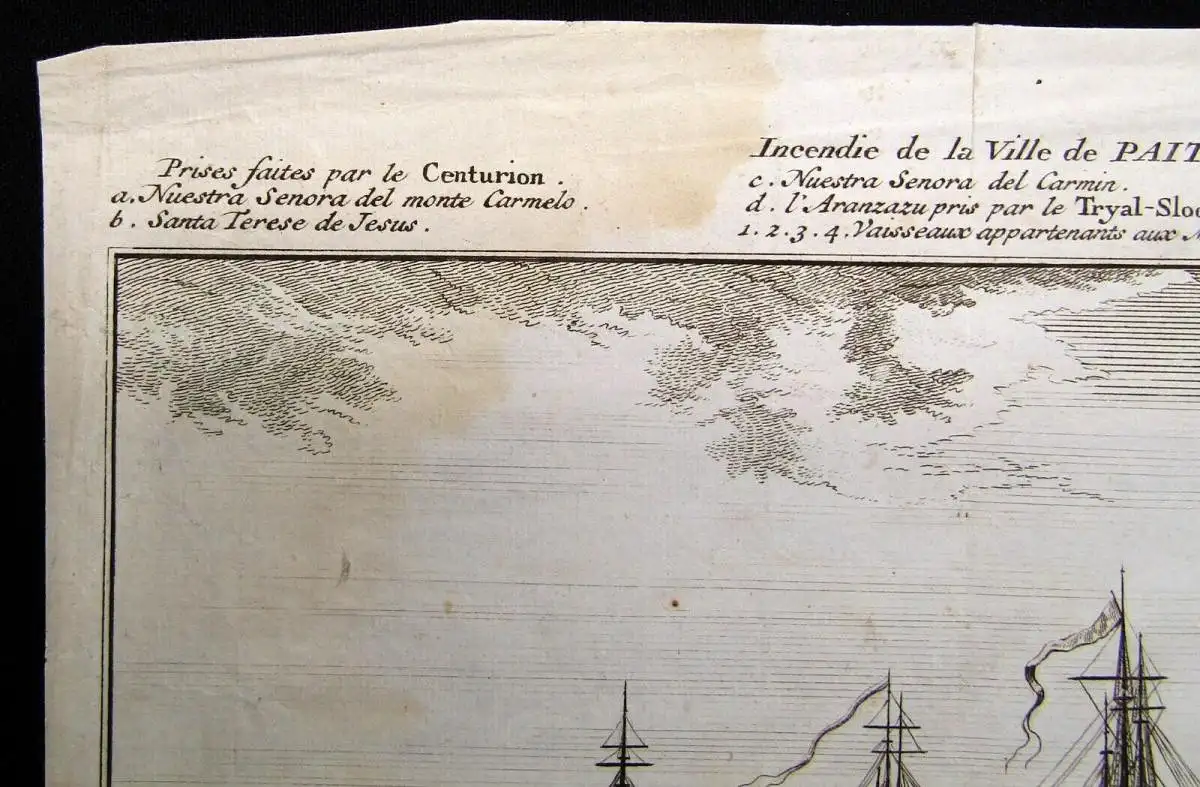 Prises faites par le Centurion.
a. Nuestra Senora del monte Carmelo.
b. Santa Terese de Jesus.
Incendie de la Ville de PAIT
c. Nuestra Senora del Carmin.
d. l'Aranzazu pris par le Tryal-Sloo
1. 2. 3. 4. Vaisseaux appartenants aux